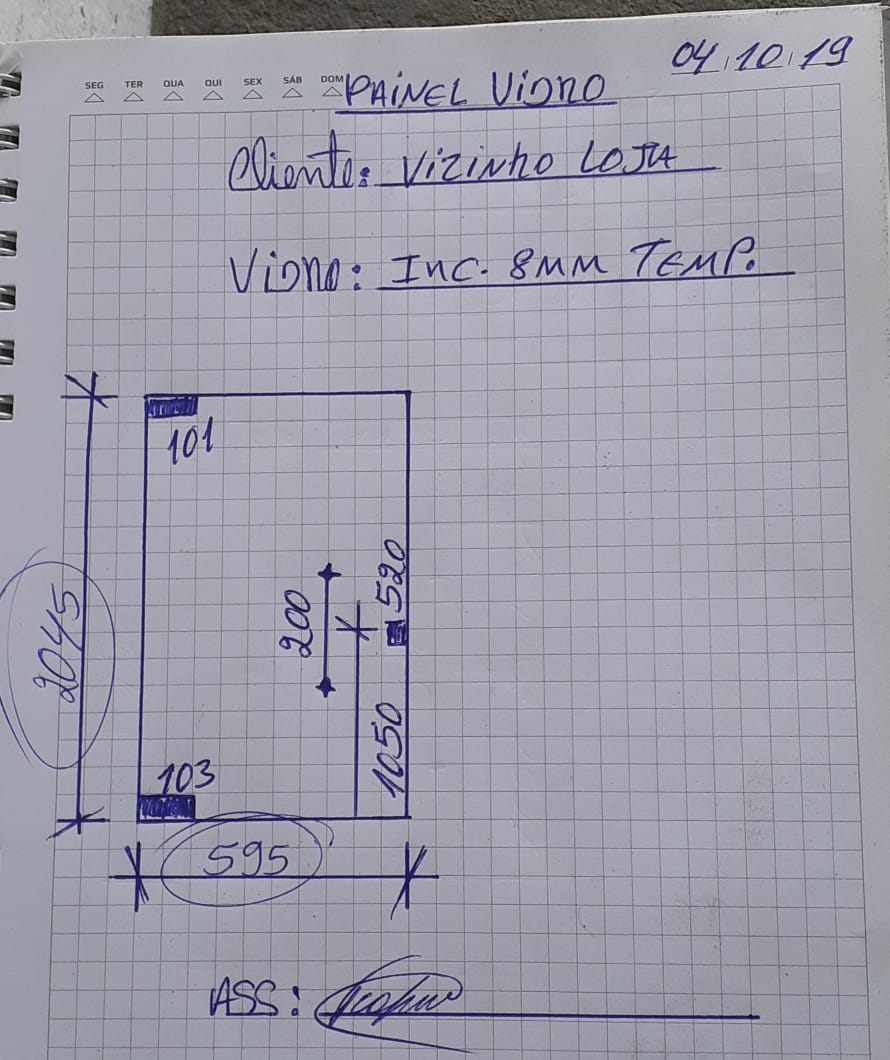 04.10.19
SEG TER QUA QUI SEX SÁB DOM
PAINEL VIDRO
Cliente: VIZINHO LOJA
VIDRO: INC. 8MM TEMP.
101
520
200
2045
1050
103
595
ASS: